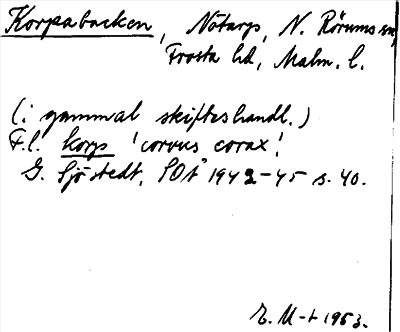 Korpabacken, Notarps, N. Rörums sn,
Frosta hd, Malm. l.
(i gammal skifteshandl.)
F.l. korp 'corvus corax'.
G. Sjöstedt, SOÅ 1942-45 s. 40.
E. M-t 1953.